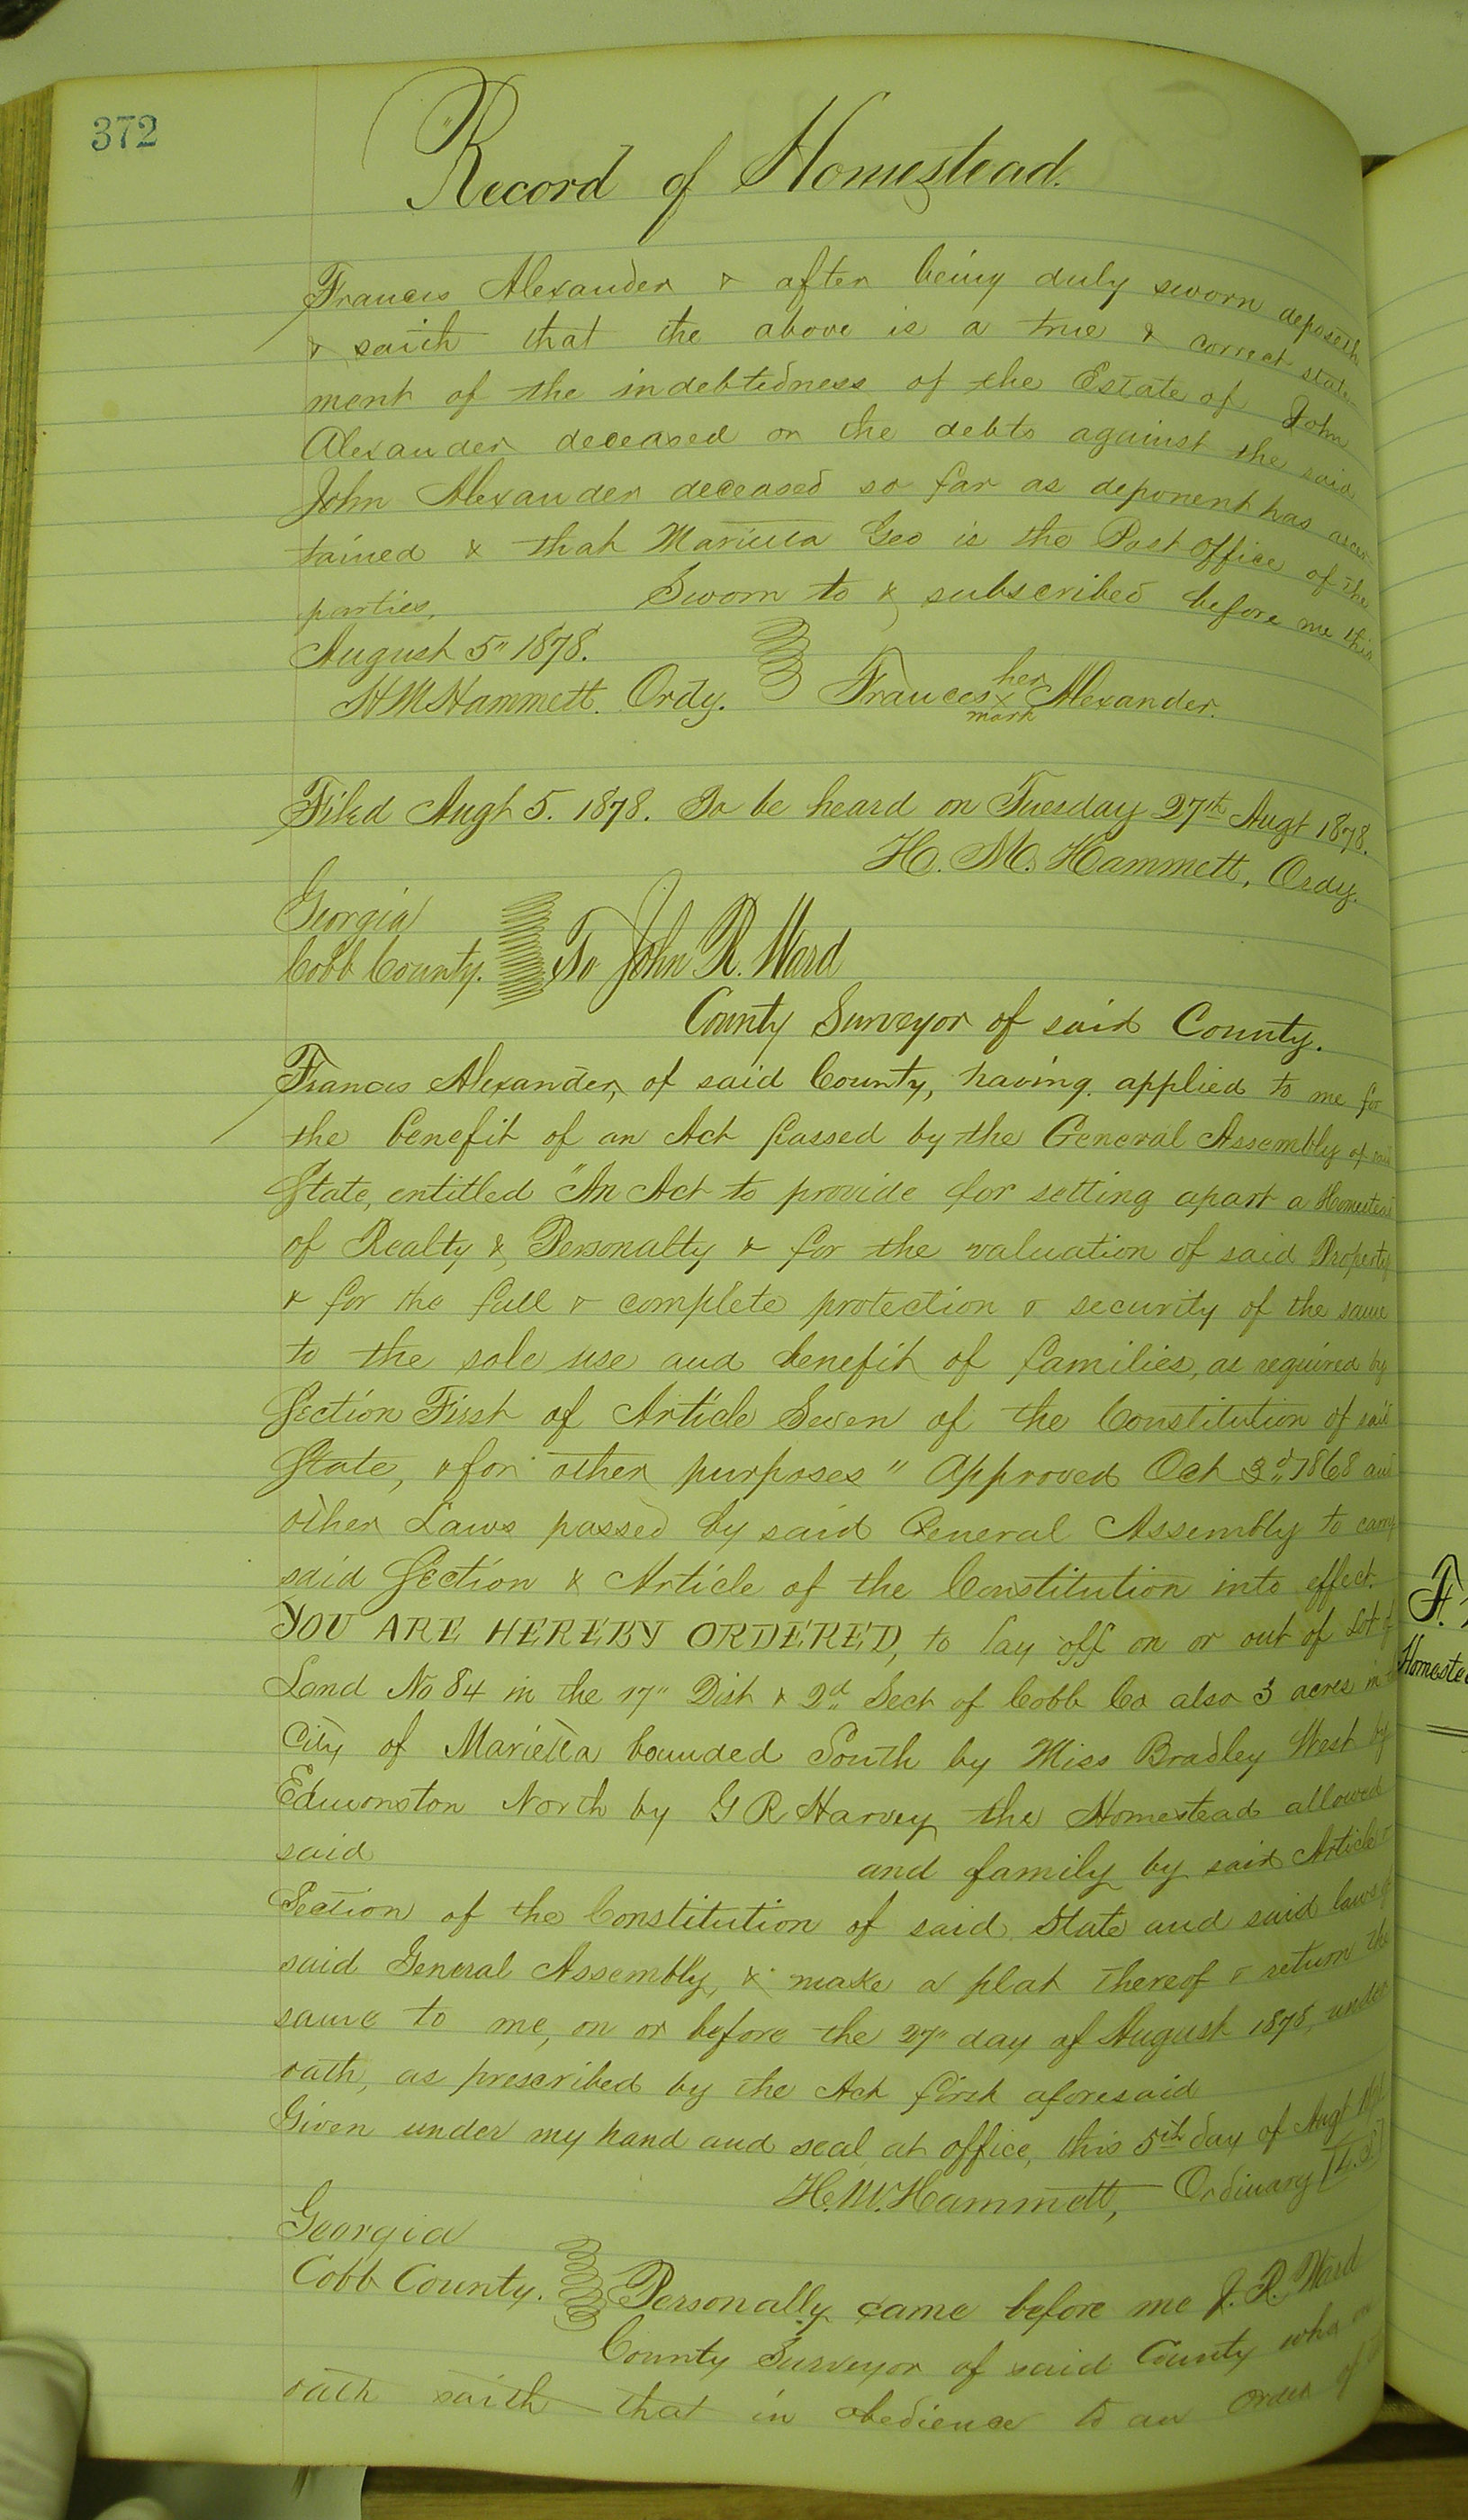 372
Record of Homestead.
Frances Alexander & after being duly sworn deposeth
& saith that the above is a true & correct state-
ment of the indebtedness of the Estate of John
Alexander deceased or the debts against the said
John Alexander deceased so far as deponent has ascer-
tained & that Marietta Geo is the Post office of the
parties. Sworn to & subscribed before me this
August 5" 1878.
H M Hammett. Ordy. Frances her x mark Alexander.
Filed Augt 5. 1878. To be heard on Tuesday 27th Augt 1878.
H. M. Hammett, Ordy.
Georgia
Cobb County. To John R. Ward
County Surveyor of said County.
Frances Alexander, of said County, having applied to me for
the benefit of an Act passed by the General Assembly of said
State, entitled "An Act to provide for setting apart a Homestead
of Realty & Personalty & for the valuation of said Property
& for the full & complete protection & security of the same
to the sole use and benefit of families, as required by
Section First of Article Seven of the Constitution of said
State, & for other purposes" Approved Oct 3d 1868 and
other Laws passed by said General Assembly to carry
said Section & Article of the Constitution into effect.
YOU ARE HEREBY ORDERED, to lay off on or out of Lot of
Land No 84 in the 17" Dist & 2d Sect of Cobb Co also 3 acres in
City of Marietta bounded South by Miss Bradley West by
Edmonston North by G R Harvey the Homestead allowed
said and family by said Article &
Section of the Constitution of said State and said laws of
said General Assembly, & make a plat thereof & return the
same to me, on or before the 27" day of August 1878, under
oath, as prescribed by the Act first aforesaid
Given under my hand and seal, at office, this 5th day of Augt
H. M. Hammett, Ordinary [L.S.]
Georgia
Cobb County. Personally came before me J. R. Ward
County Surveyor of said County who on
oath saith that in obedience to an order of
Homeste